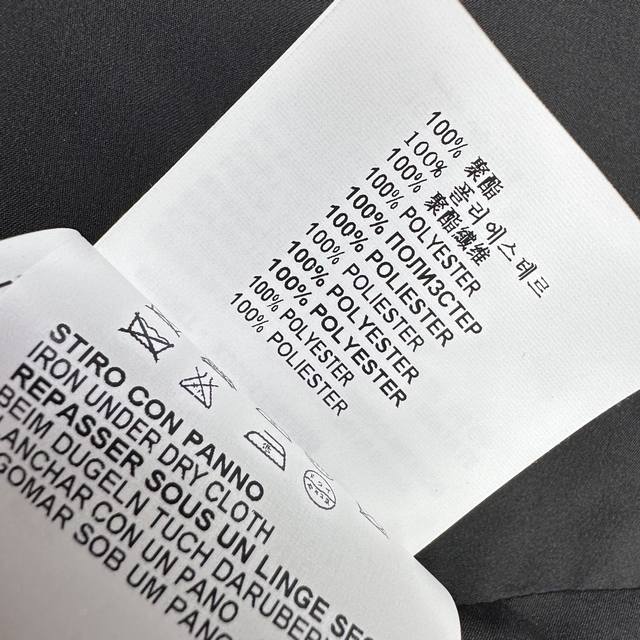 100% 聚酯
100% 폴리에스테르
100% 聚酯纖维
100% POLYESTER
100% ПОЛИЗСТЕР
100% POLIESTER
100% POLIESTER
100% POLYESTER
100% POLYESTER
100% POLYESTER
100% POLIESTER
STIRO CON PANNO
IRON UNDER DRY CLOTH
REPASSER SOUS UN LINGE SEC
BEIM DUGELN TUCH DARUBER
ANCHAR CON UN PANO
GOMAR SOB UM PANO